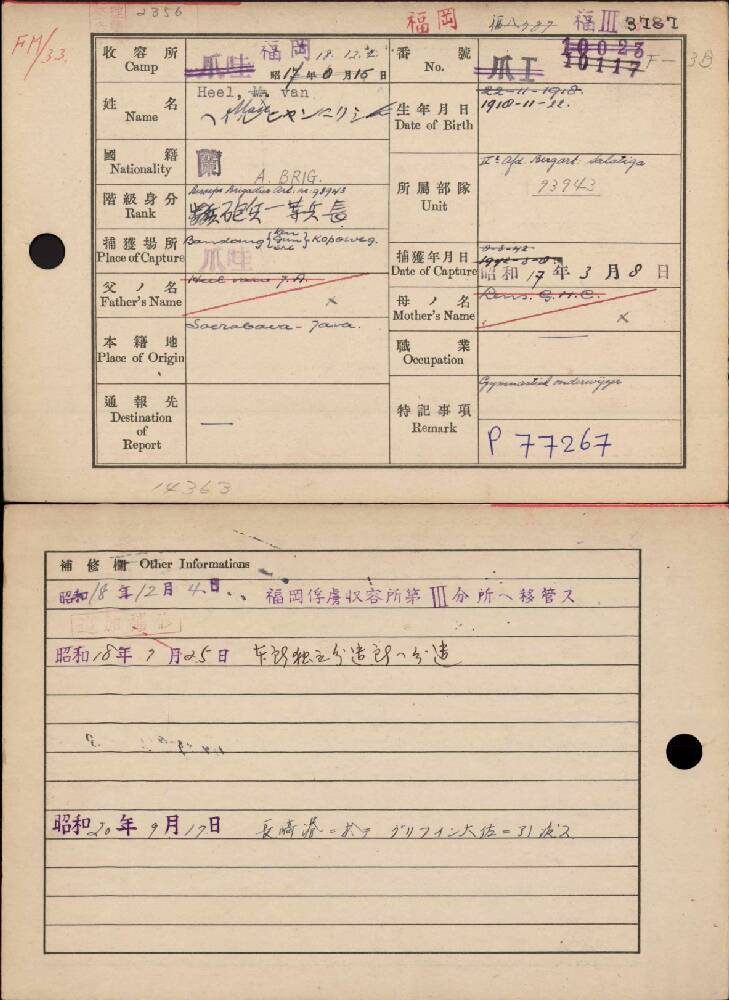 2356
FM/33.
福岡 福ハ787 福III 3787
收容所 Camp
爪哇 福岡 18.12.4
昭17年6月15日
番號 No.
爪I 10023
10117 F-3B
姓名 Name
Heel, van
生年月日 Date of Birth
22-11-1918.
1918-11-22.
國籍 Nationality
蘭
A. BRIG.
階級身分 Rank
砲兵一等兵長
所屬部隊 Unit
IIe Afd. Bergart. Salatiga
93943
捕獲場所 Place of Capture
Bandoeng Kopoweg.
爪哇
捕獲年月日 Date of Capture
8-3-42
昭和17年3月8日
父ノ名 Father's Name
Heel van J.A.
×
母ノ名 Mother's Name
G.H.C.
×
本籍地 Place of Origin
Soerabaia - Java.
職業 Occupation
通報先 Destination of Report
特記事項 Remark
Gymnastiek onderwijzer
P 77267
14363
補修欄 Other Informations
昭和18年12月4日 福岡俘虜収容所第III分所ヘ移管ス
昭和18年7月25日
昭和20年9月17日 長崎港ニ於テ グリフイン大佐ニ引渡ス